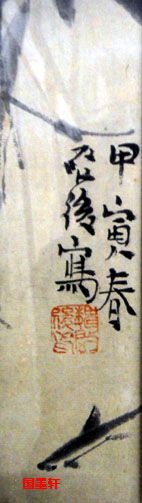 甲寅春
石後寫
国墨轩